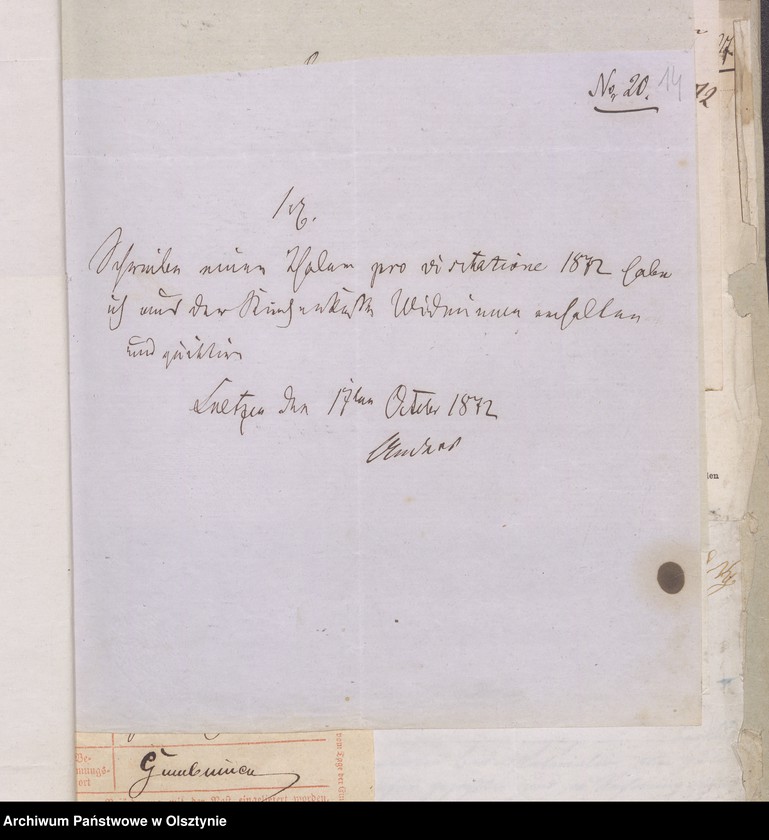 No. 20. 14
Schreibe einen Thaler pro visitatione 1872 habe
ich aus der Kirchenkasse Widminnen erhalten
und quittire
Loetzen den 17ten October 1872
Anders
ten
Be-
mungs-
ort
Gumbinnen
Archiwum Państwowe w Olsztynie